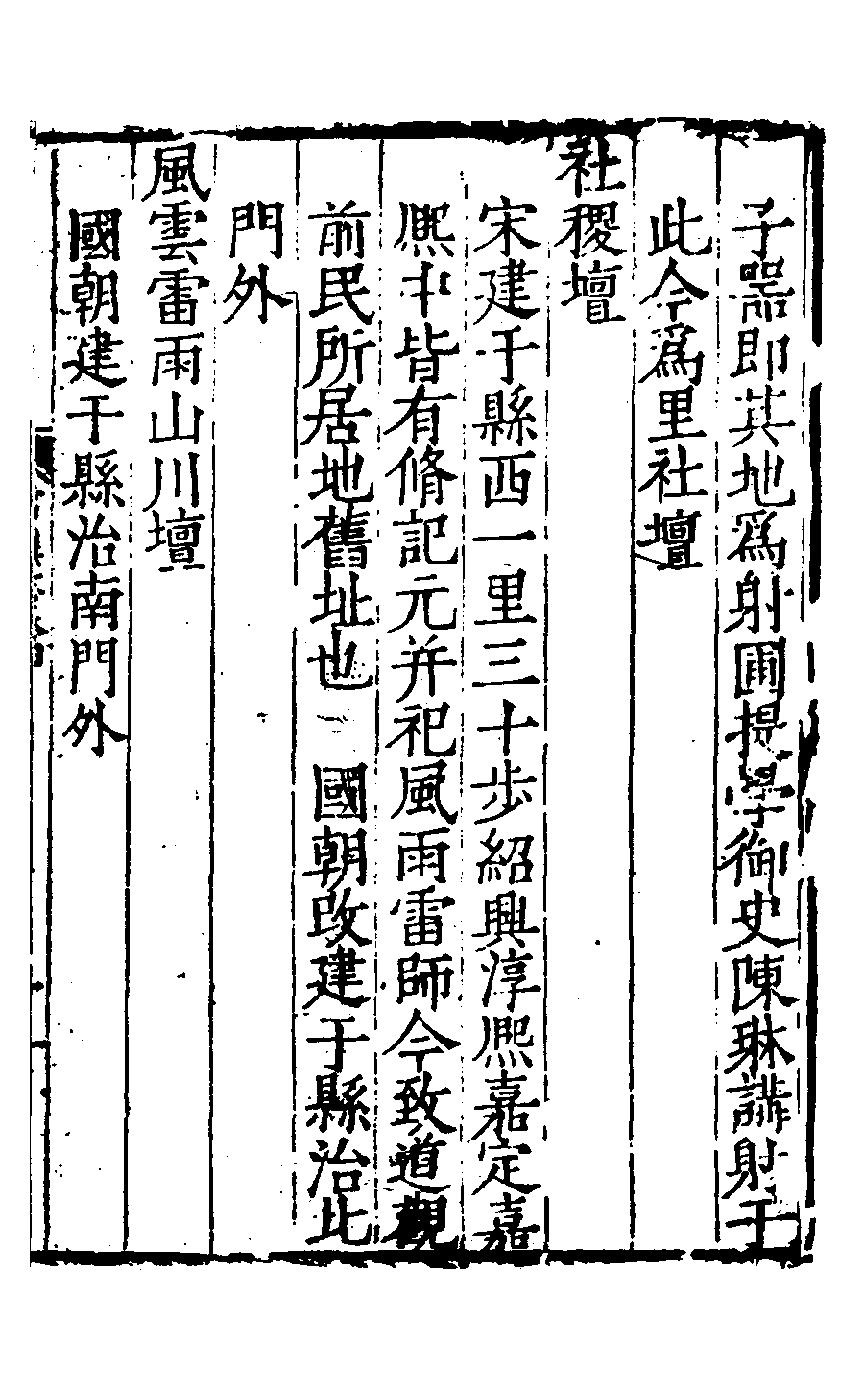 子器即其地為射圃提學御史陳琳講射于
此今為里社壇
社稷壇
宋建于縣西一里三十步紹興淳熙嘉定嘉
熙中皆有脩記元并祀風雨雷師今致道觀
前民所居地舊址也　國朝改建于縣治北
門外
風雲雷雨山川壇
國朝建于縣治南門外